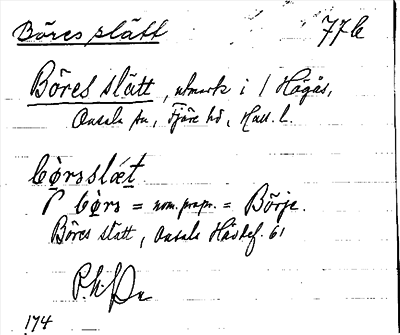 Böres slätt 77b
Böres slätt, utmark i 1 Högås,
Onsala sn, Fjäre hd, Hall. l.
bø̣rsslǽt.
bø̣rs = nom. propr. = Börje.
Böres slätt, Onsala Hädkf. 61
174